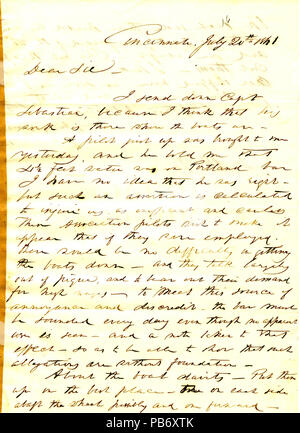 Cincinnati, July 20th 1861
Dear Sir —
I send down Capt
Sebastian, because I think that his
work is there where the boats are —
A pilot just up was brought to me
yesterday, and he told me that
six feet water was on Portland bar
I have no idea that he was right —
but such an assertion is calculated
to injure us, as inefficient and careless
them pilots and to make it
appear that if they were employed
there would be no difficulty in getting
the boats down — and they talk largely
out of pique, and to bear out their demand
for high wages — to meet this source of
annoyance and discredit the bar must
be sounded every day even though no apparent
use is seen — and a note taken to that
effect — so as to be able to show that such
allegations are without foundation —
About the boat davits — Put them
up in the best place — one on each side
abaft the wheel possibly and one forward —
alamy
PB6XTK